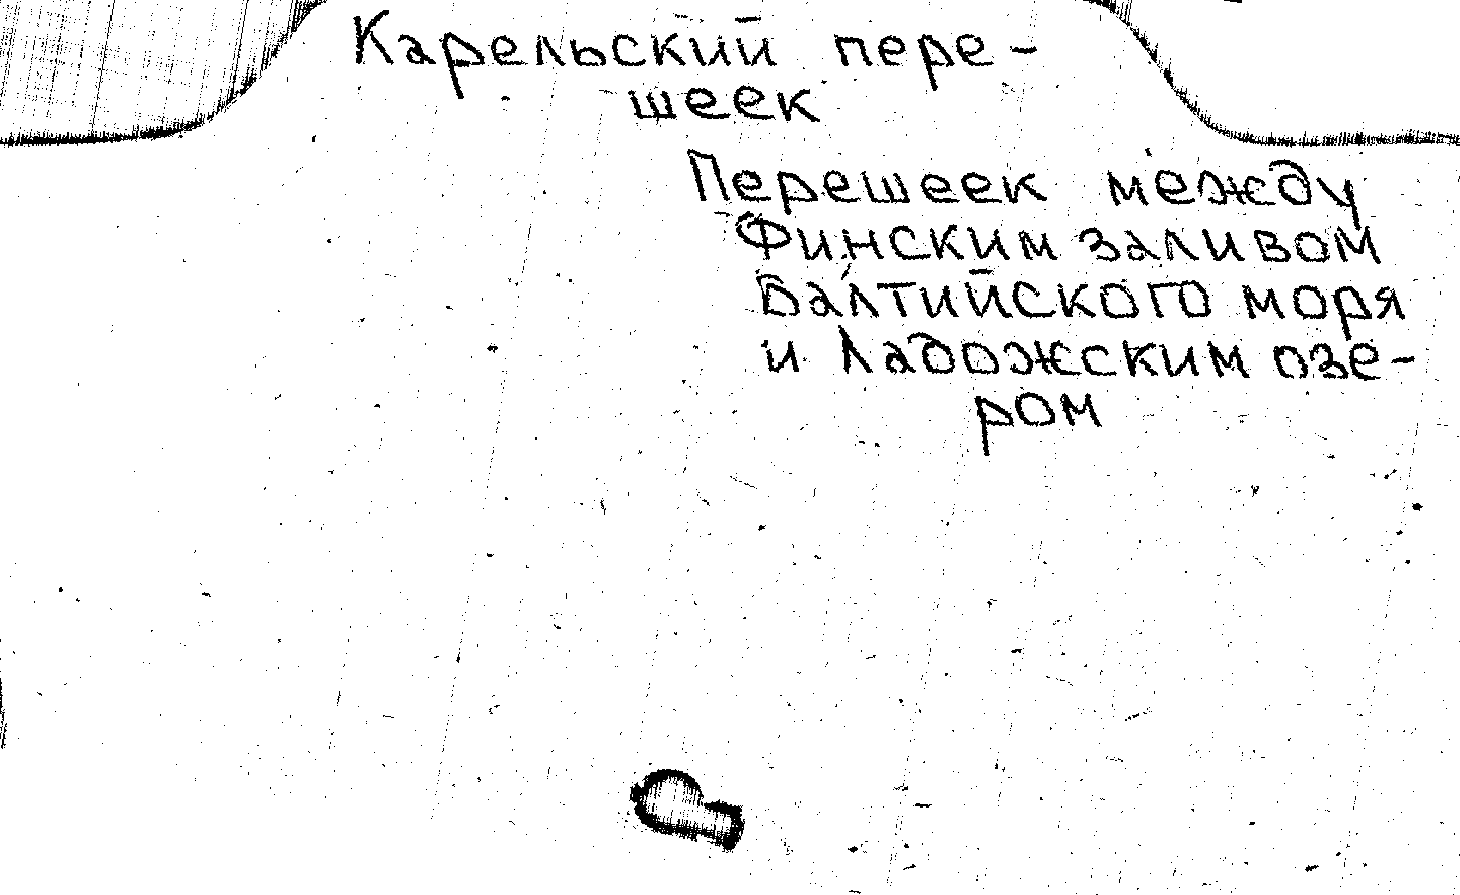 Карельский пере-
шеек
Перешеек между
Финским заливом
Балтийского моря
и Ладожским озе-
ром